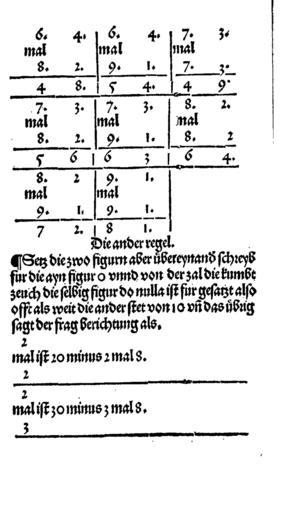 6. 4. 6. 4. 7. 3.
mal mal mal
8. 2. 9. 1. 7. 3.
4 8. 5 4. 4 9.
7. 3. 7. 3. 8. 2.
mal mal mal
8. 2. 9. 1. 8. 2
5 6 6 3 6 4.
8. 2 9. 1.
mal mal
9. 1. 9. 1.
7 2. 8 1.
Die ander regel.
¶Setz die zwo figurn aber übereynand schreyb
für die ayn figur 0 vnnd von der zal die kumbt
zeuch die selbig figur do nulla ist für gesatzt also
offt als weit die ander stet von 10 vñ das übrig
sagt der frag berichtung als.
2
mal ist 20 minus 2 mal 8.
2
2
mal ist 30 minus 3 mal 8.
3